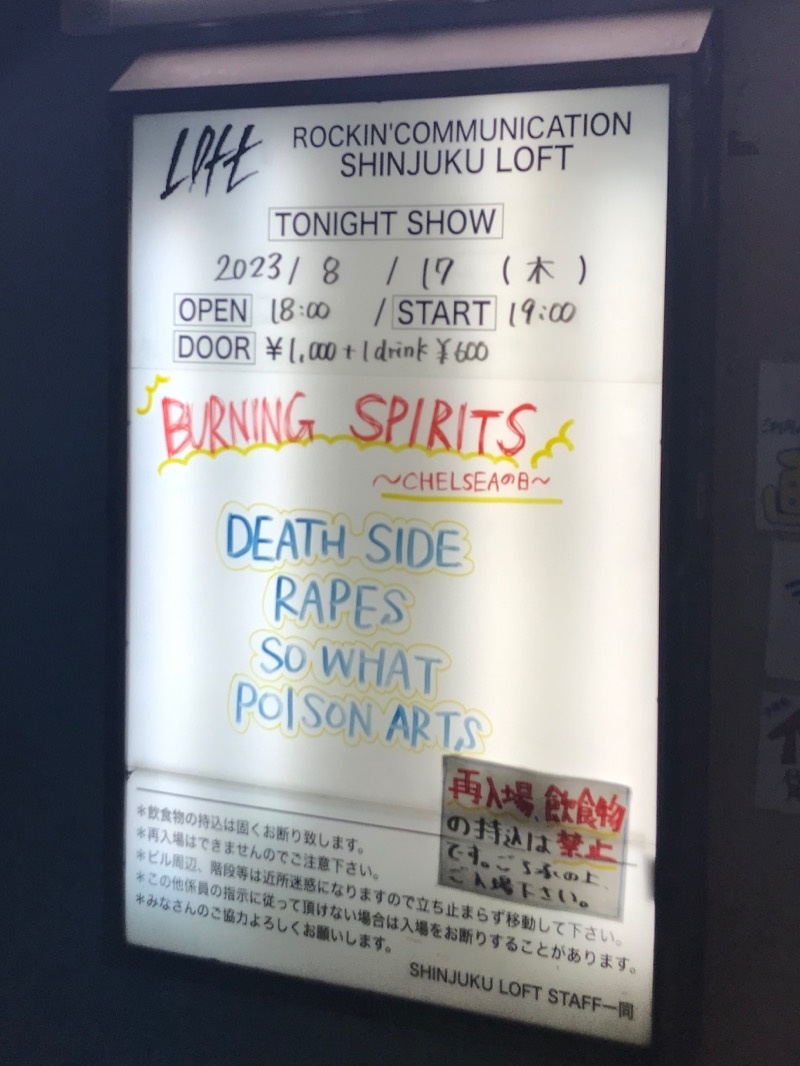 Loft
ROCKIN'COMMUNICATION
SHINJUKU LOFT
TONIGHT SHOW
2023/ 8 / 17 (木)
OPEN 18:00 / START 19:00
DOOR ¥1,000+1drink ¥600
BURNING SPIRITS
～CHELSEAの日～
DEATH SIDE
RAPES
SO WHAT
POISON ARTS
再入場、飲食物
の持込は禁止
です。ご了承の上、
ご入場下さい。
＊飲食物の持込は固くお断り致します。
＊再入場はできませんのでご注意下さい。
＊ビル周辺、階段等は近所迷惑になりますので立ち止まらず移動して下さい。
＊この他係員の指示に従って頂けない場合は入場をお断りすることがあります。
＊みなさんのご協力よろしくお願いします。
SHINJUKU LOFT STAFF一同